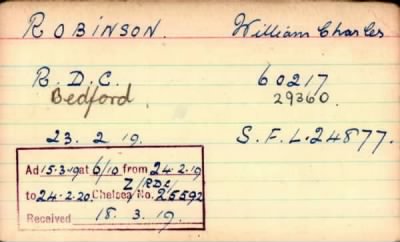 ROBINSON. William Charles
R.D.C. 60217
Bedford 29360.
23. 2 19. S.F.L.24877.
Ad 15.3.19 at 6/10 from 24.2.19
Z/RDC/
to 24.2.20. Chelsea No. 25592
Received 18. 3. 19.